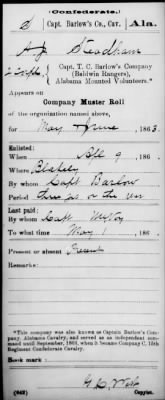 (Confederate.)
S Capt. Barlow's Co., Cav. Ala.
A J Steadham
Capt. T. C. Barlow's Company
(Baldwin Rangers),
Alabama Mounted Volunteers.*
Appears on
Company Muster Roll
of the organization named above,
for May June, 1863.
Enlisted:
When 9, 186
Where Blakely
By whom Capt Barlow
Period three yrs or the war
Last paid:
By whom Capt
To what time May 1, 186
Present or absent Present
Remarks:
*This company was also known as Captain Barlow's Company, Alabama Cavalry, and served as an independent command until September, 1863, when it became Company C, 15th Regiment Confederate Cavalry.
Book mark:
(642)